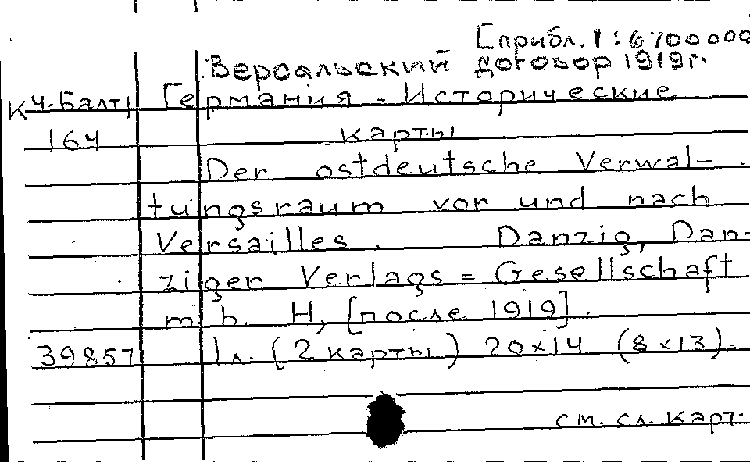 [прибл. 1:6700000
Версальский договор 1919г.
К Ч-Балт Германия - Исторические
164 карты
Der ostdeutsche Verwal-
tungsraum vor und nach
Versailles. Danzig, Dan-
ziger Verlags = Gesellschaft
m. b. H, [после 1919].
39857 1 л. (2 карты) 20x14 (8x13).
см. сл. карт.